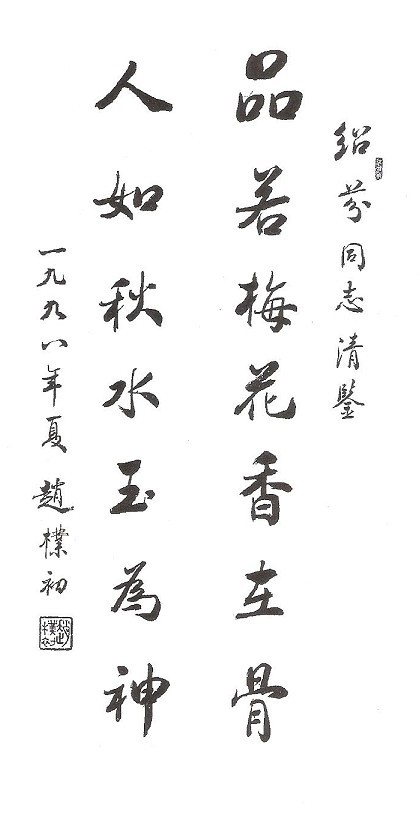 绍芬同志清鑒
品若梅花香在骨
人如秋水玉為神
一九九八年夏 趙樸初